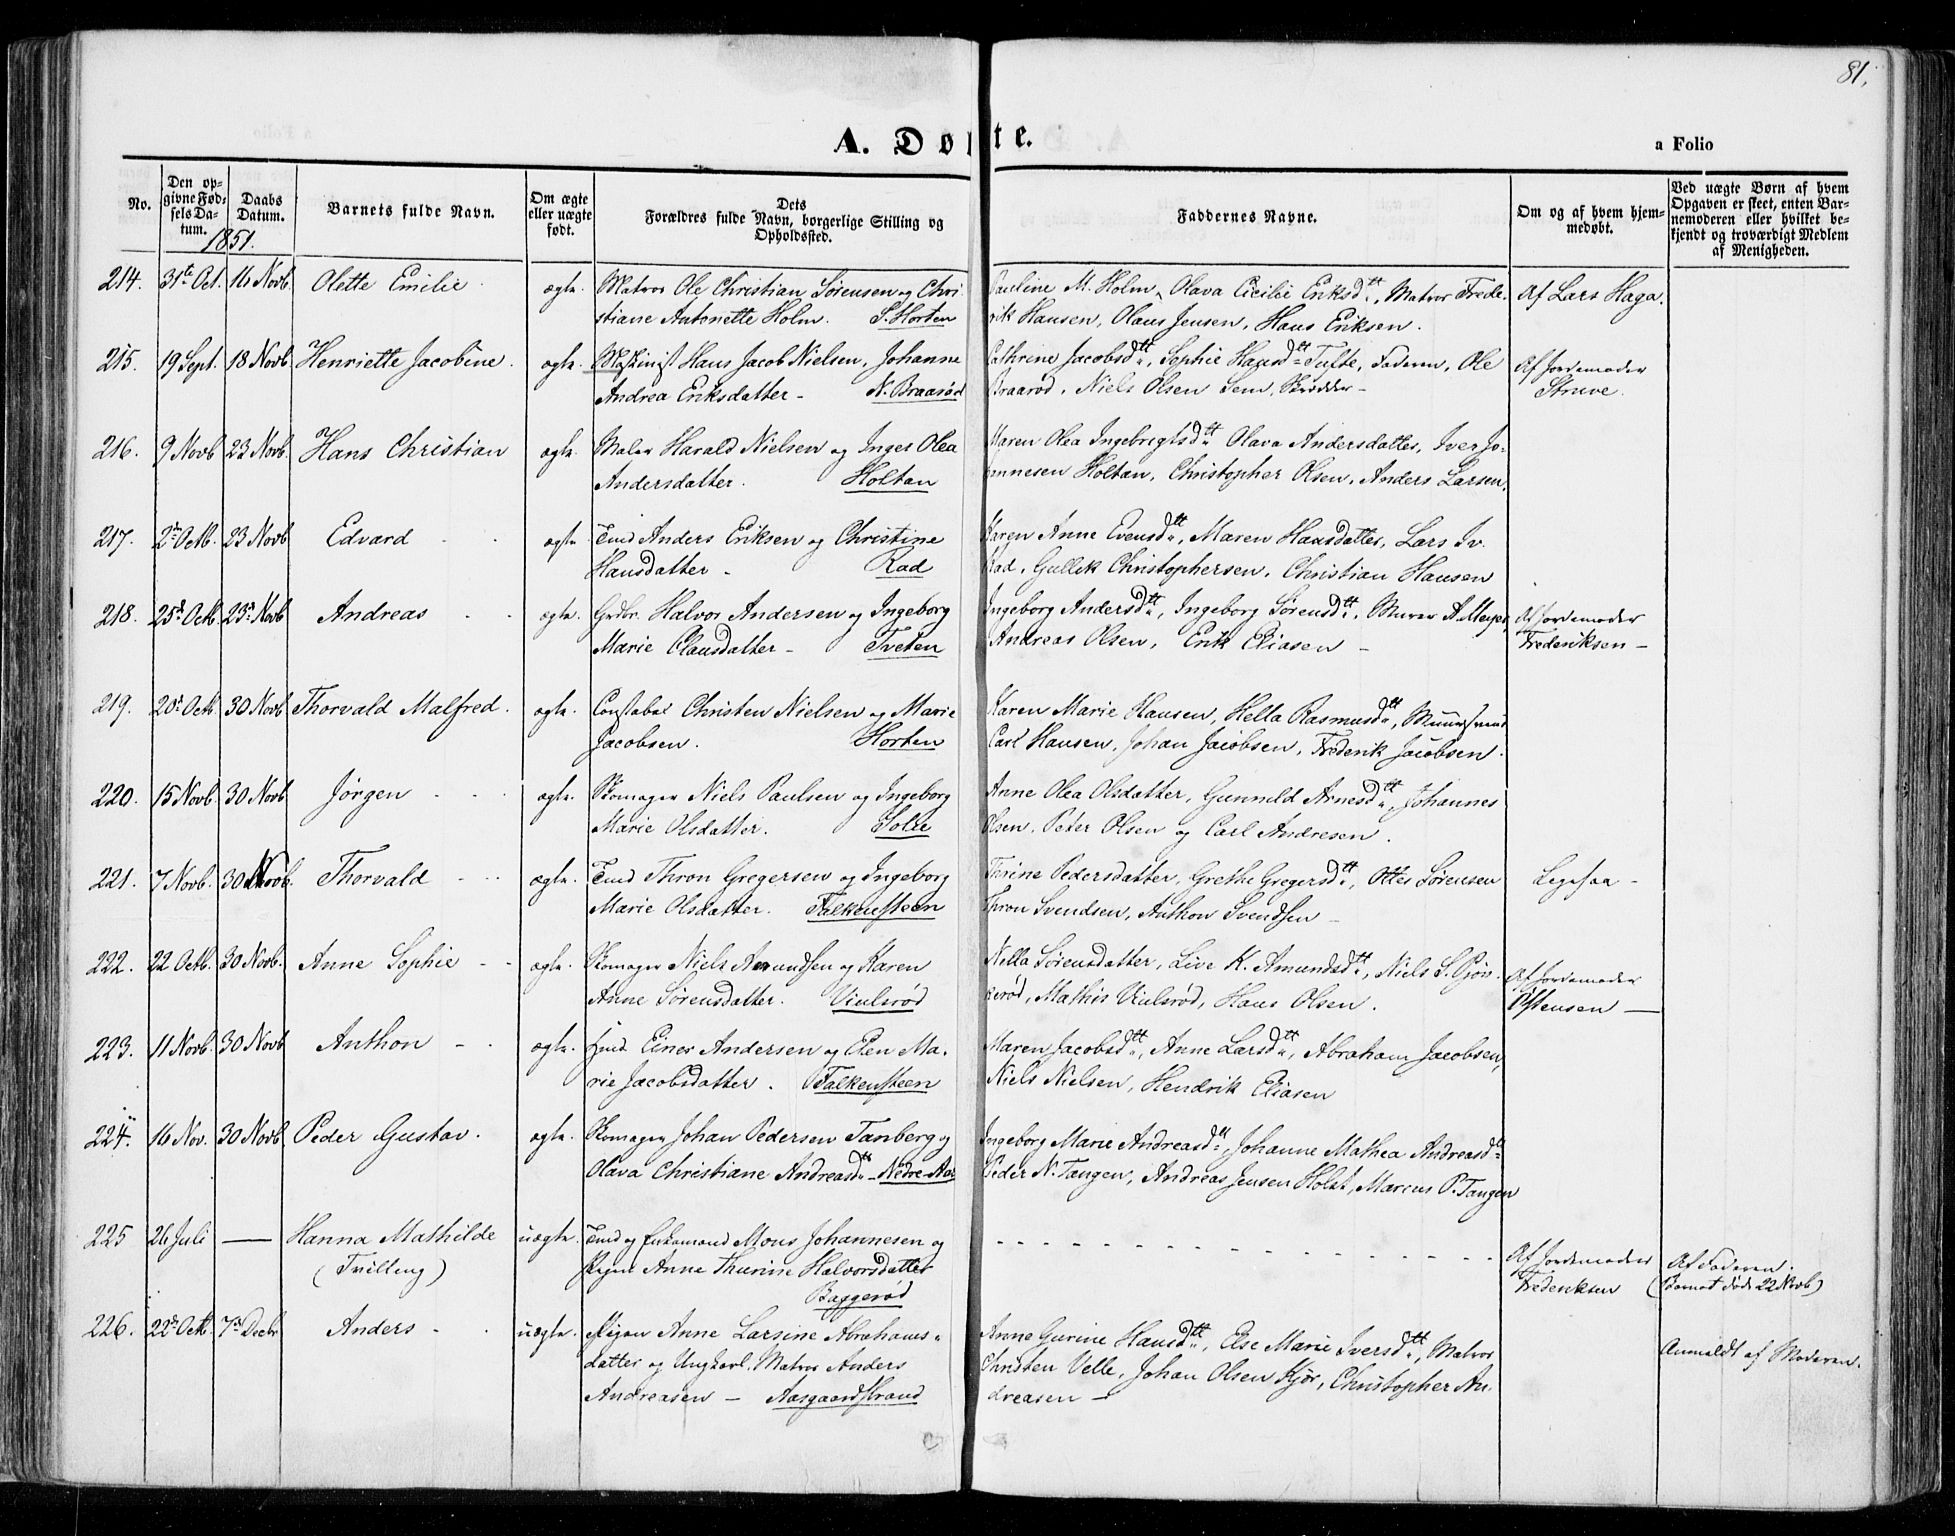 81.
A. Døbte.
a Folio
No.
Den opgivne Fødsels Datum.
Daabs Datum.
Barnets fulde Navn.
Om ægte eller uægte født.
Dets Forældres fulde Navn, borgerlige Stilling og Opholdssted.
Faddernes Navne.
Om og af hvem hjemmedøbt.
Ved uægte Børn af hvem Opgaven er skeet, enten Barnemoderen eller hvilket bekjendt og troværdigt Medlem af Menigheden.
1851.
214. 31te Oct. 16 Novb Olette Emilie. ægte. Matros Ole Christian Sørensen og Chri- Pauline M. Holm, Olava Cicilie Eriksdtt, Matros Frede- Af Lars Haga.
stiane Antonette Holm. S. Horten rik Hansen, Olaus Jensen, Hans Eriksen.
215. 19 Sept. 18 Novb Henriette Jacobine. ægte. Maskinist Hans Jacob Nielsen, Johanne Cathrine Jacobsdtt, Sophie Hansdtt Tufte, Faderen, Ole Af Jordemoder
Andrea Eriksdatter - N. Braarød Braarød, Niels Olsen Sem, Skrædder - Struve.
216. 9 Novb 23 Novb. Hans Christian ægte. Maler Harald Nielsen og Inger Olea Maren Olea Ingebrigtsdtt Olava Andersdatter, Iver Jo-
Andersdatter. Holtan hannesen Holtan, Christopher Olsen, Anders Larsen.
217. 2den Octb. 23 Novb Edvard - - ægte Inds Anders Eriksen og Christine Karen Anne Evensdtt, Maren Hansdatter, Lars Iv.
Hansdatter - Rad Rad, Gullik Christophersen, Christian Hansen
218. 25de Octb 23de Novb Andreas - - ægte. Grdbr. Halvor Andersen og Ingeborg Ingeborg Andersdtt, Ingeborg Sørensdtt, Murer A. Meyer, Af Jordemoder
Marie Clausdatter - Tveten Andreas Olsen, Erik Eliasen - Frederiksen -
219. 20de Octb 30 Novb Thorvald Malfred. ægte. Constabel Christen Nielsen og Marie Karen Marie Hansen, Hella Rasmusdtt, Muursvend
Jacobsen. Horten Carl Hansen, Johan Jacobsen, Frederik Jacobsen.
220. 15 Novb. 30 Novb. Jørgen - - ægte. Skomager Niels Paulsen og Ingeborg Anne Olea Olsdatter, Gunnild Arnesdtt, Johannes
Marie Olsdatter. Solie Olsen, Peter Olsen og Carl Andresen.
221. 7 Novb. 30 Novb. Thorvald - - ægte. Inds Thron Gregersen og Ingeborg Thrine Pedersdatter, Grethe Gregersdtt, Otter Sørensen Legesaa -
Marie Olsdatter. Falkensteen Thron Svendsen, Anthon Svendsen -
222. 22 Octb. 30 Novb. Anne Sophie - - ægte. Skomager Niels Amundsen og Karen Nella Sørensdatter, Live K. Amundsdtt, Niels S. Gjøn- Af Jordemoder
Anne Sørensdatter. Viulsrød nerød, Mathis Viulsrød, Hans Olsen. Østensen -
223. 11 Novb. 30 Novb Anthon - - ægte. Inds. Einer Andersen og Elen Ma- Maren Jacobsdtt, Anne Larsdtt, Abraham Jacobsen,
rie Jacobsdatter. Falkensteen Niels Nielsen, Hendrik Eliasen
224. 16 Nov. 30 Novb Peder Gustav. ægte. Skomager Johan Pedersen Tanberg og Ingeborg Marie Andreasdtt, Johanne Mathea Andreasdtt
Olava Christiane Andreasdtt - Nedre Aas Peder N. Tangen, Andreas Jensen Holst, Marcus P. Tangen
225 26 Juli — Hanna Mathilde uægte. Inds og Enkemand Mons Johannesen og - - - - - - Af Jordemoder Af Faderen.
(Tvilling) Pigen Anne Thurine Halvorsdatter Frederiksen (Barnet døde 22 Novb)
Baggerød
226. 22de Octb. 7de Decbr Anders - - uægte. Pigen Anne Larsine Abrahams- Anne Gurine Hansdtt, Else Marie Iversdtt, Matros Anmeldt af Moderen.
datter og Ungkarl, Matros Anders Christen Velle, Johan Olsen Kjør, Christopher An-
Andreasen - Aasgaardstrand dreasen -